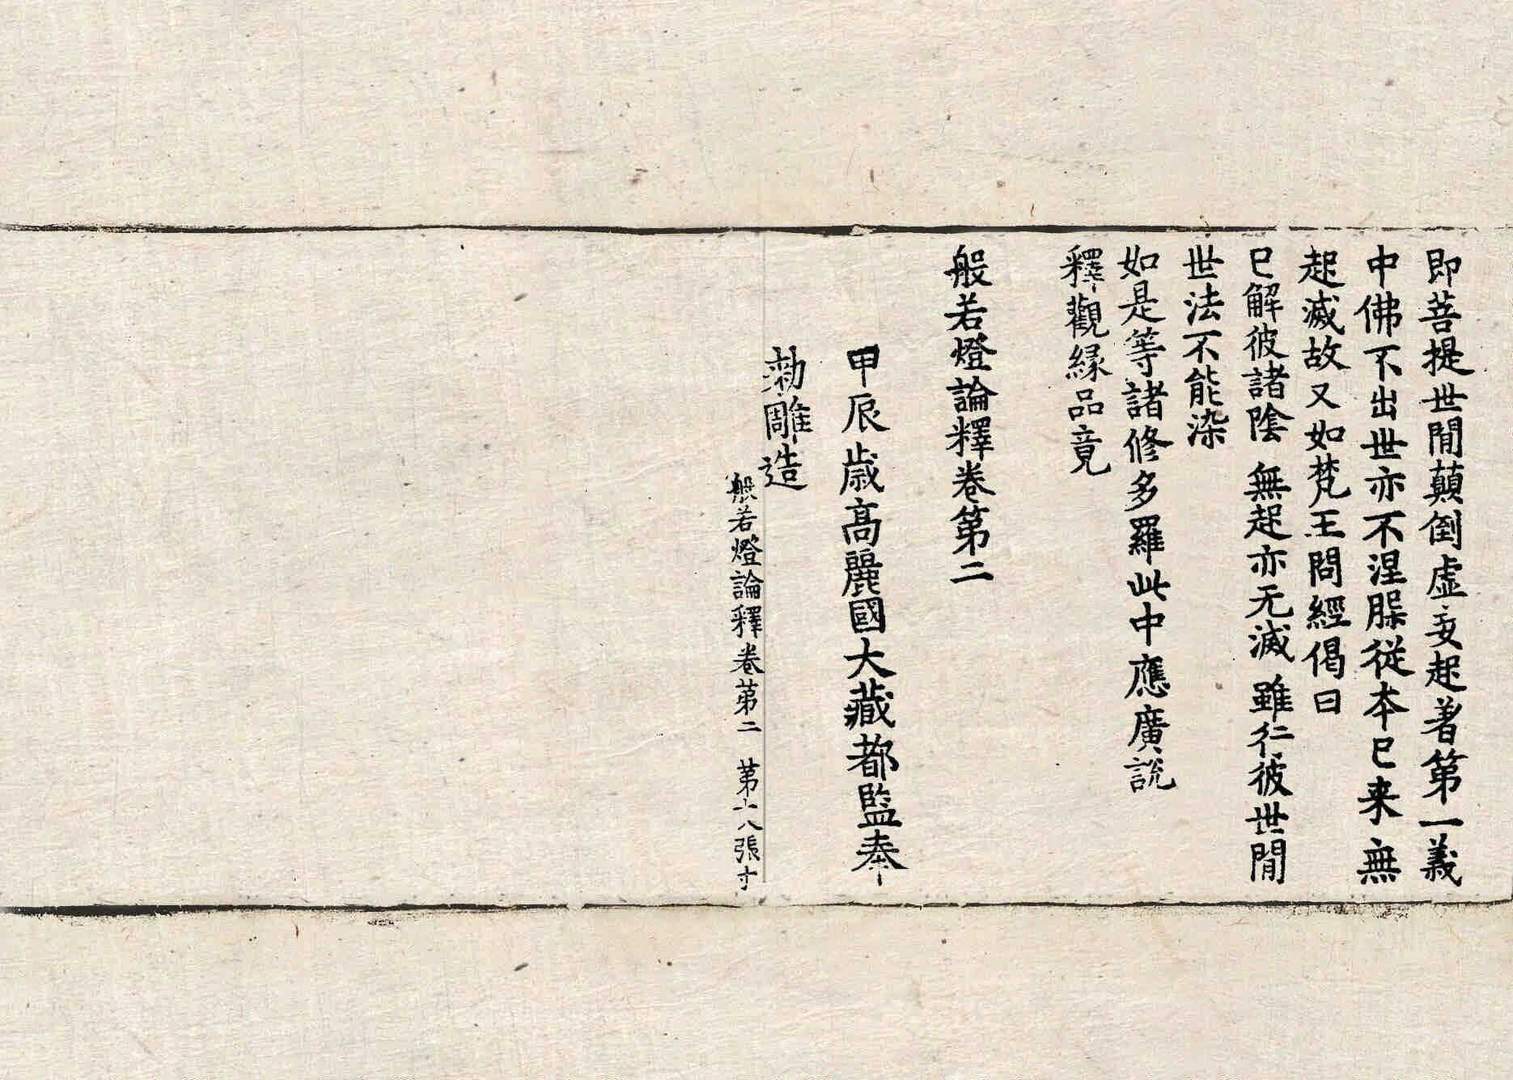 即菩提世閒顛倒虛妄起著第一義
中佛不出世亦不涅槃從本已来無
起滅故又如梵王問經偈曰
已解彼諸陰 無起亦无滅 雖行彼世閒
世法不能染
如是等諸修多羅此中應廣說
釋觀緣品竟
般若燈論釋卷第二
甲辰歲高麗國大藏都監奉
勑雕造
般若燈論釋卷第二 第十八張 寸